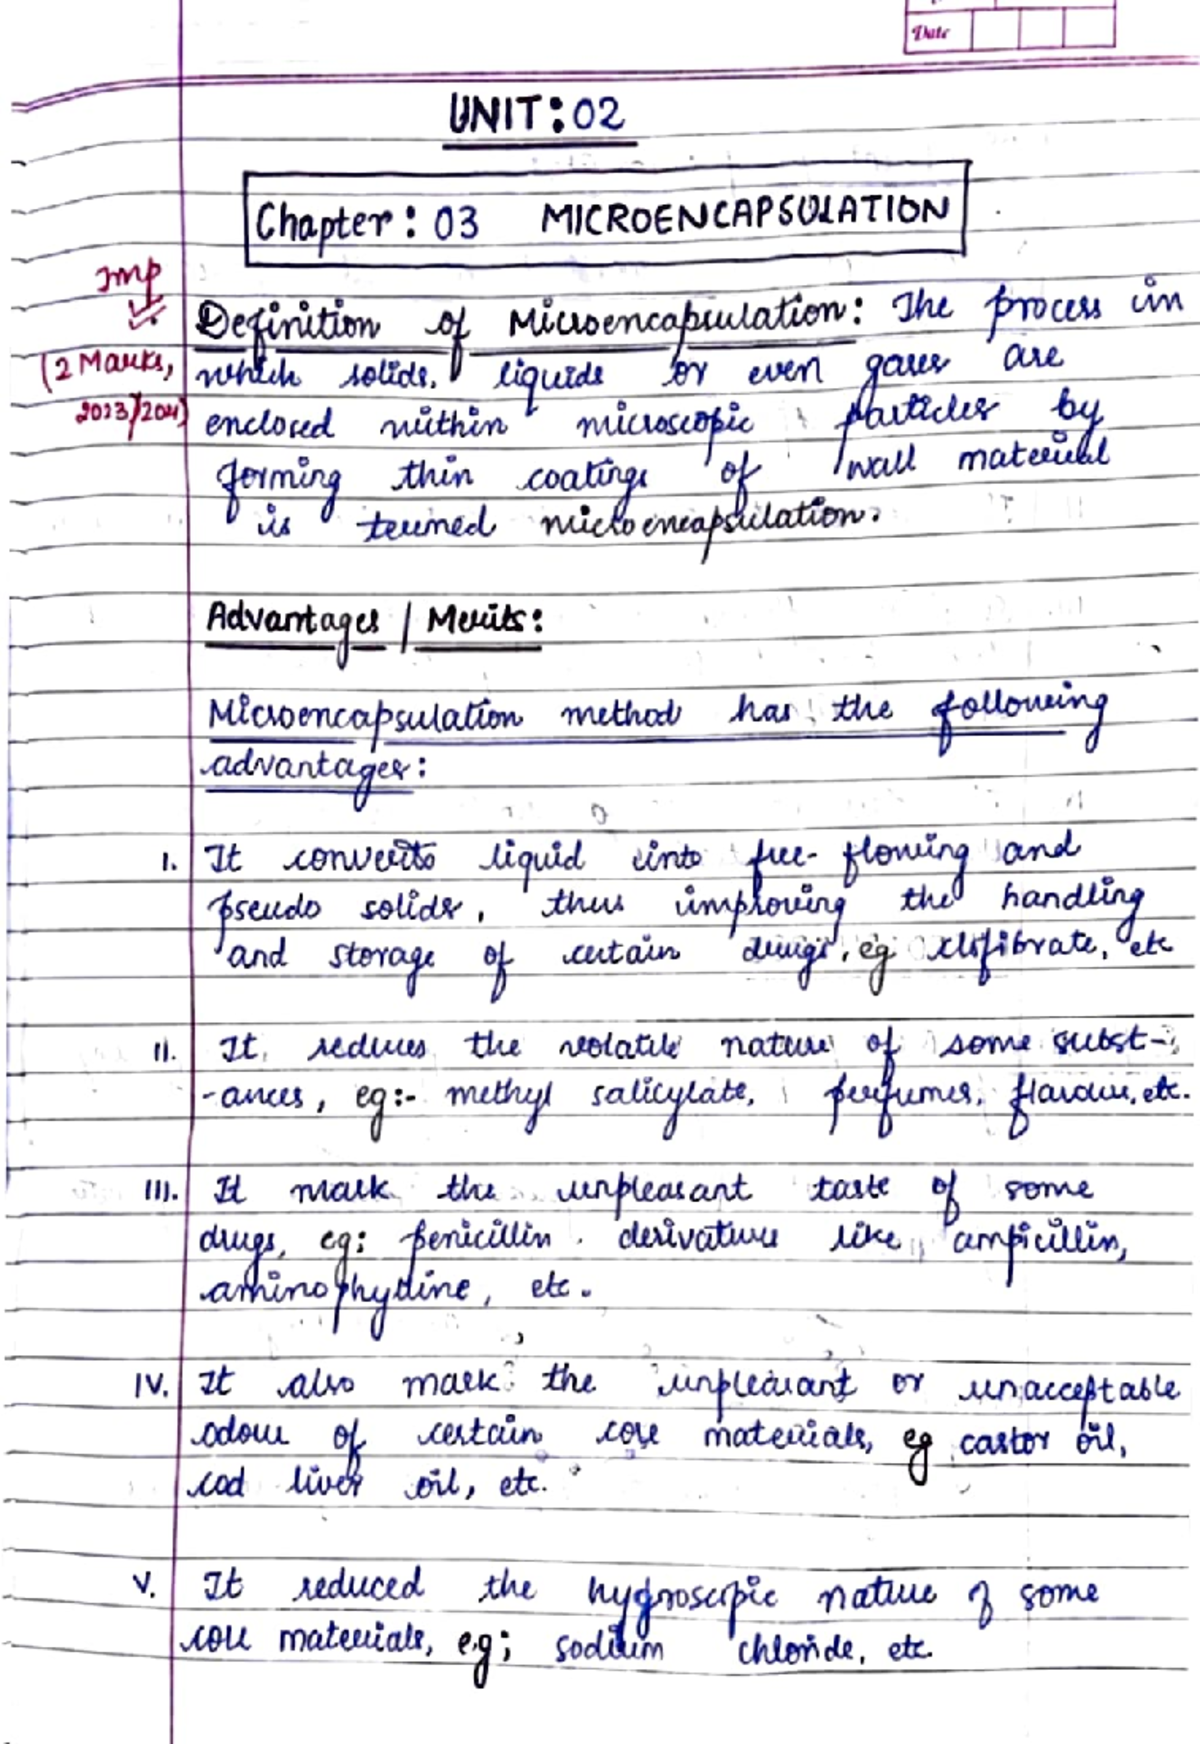 Date
UNIT: 02
Chapter: 03 MICROENCAPSULATION
Imp
Definition of Microencapsulation: The process in
(2 Marks, which solids, liquids or even gases are
enclosed within microscopic particles by
forming thin coatings of wall material
is termed microencapsulation.
Advantages / Merits:
Microencapsulation method has the following
advantages:
I. It converts liquid into free-flowing and
pseudo solids, thus improving the handling
and storage of certain drugs, eg clofibrate, etc
II. It reduces the volatile nature of some subst-
-ances, eg:- methyl salicylate, perfumes, flavour, etc.
III. It mask the unpleasant taste of some
drugs, eg: penicillin derivative like ampicillin,
aminophylline, etc.
IV. It also mask the unpleasant or unacceptable
odour of certain core materials, eg castor oil,
cod liver oil, etc.
V. It reduced the hygroscopic nature of some
core materials, e.g; sodium chloride, etc